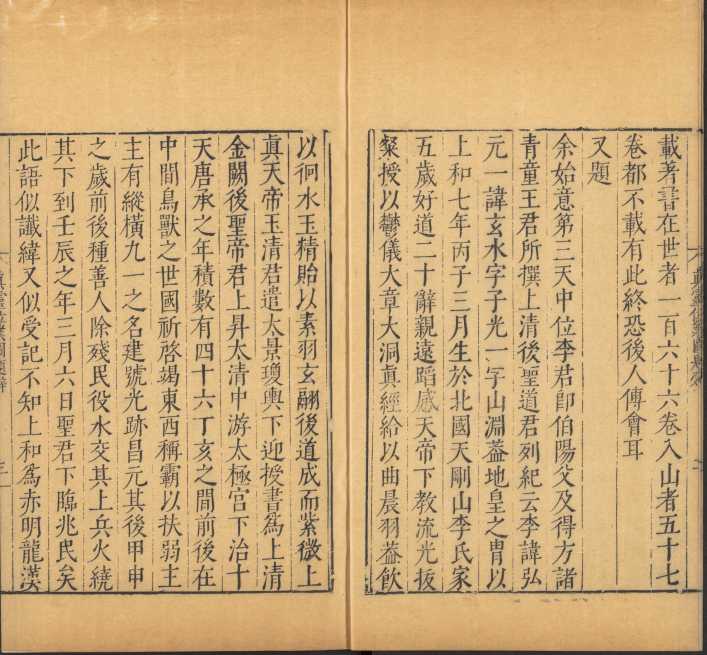 載著書在世者一百六十六卷入山者五十七
卷都不載有此終恐後人傳會耳
又題
余始意第三天中位李君卽伯陽父及得方諸
青童王君所撰上清後聖道君列紀云李諱弘
元一諱玄水字子光一字山淵蓋地皇之胄以
上和七年丙子三月生於北國天剛山李氏家
五歲好道二十辭親遠蹈感天帝下教流光抜
粲授以鬱儀大章大洞眞經給以曲晨羽蓋飲
以徊水玉精貽以素羽玄翮後道成而紫微上
眞天帝玉清君遣太景瓊輿下迎授書爲上清
金闕後聖帝君上昇太清中游太極宮下治十
天唐承之年積數有四十六丁亥之間前後在
中間鳥獸之世國祈啓竭東西稱霸以扶弱主
主有縱橫九一之名建號光跡昌元其後甲申
之歲前後種善人除殘民役水交其上兵火繞
其下到壬辰之年三月六日聖君下臨兆民矣
此語似讖緯又似受記不知上和爲赤明龍漢